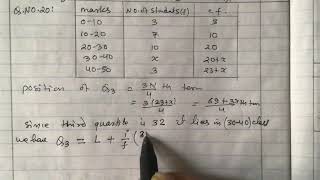 Q.NO.20: marks No. of Students(f) c.f.
0-10 3 3
10-20 7 10
20-30 10 20
30-40 x 20+x
40-50 3 23+x
position of Q3 = 3N/4 th term
= 3(23+x)/4 = 69+3x/4 th term
Since third quartile is 32 it lies in (30-40) class
we have Q3 = L + i/f (3